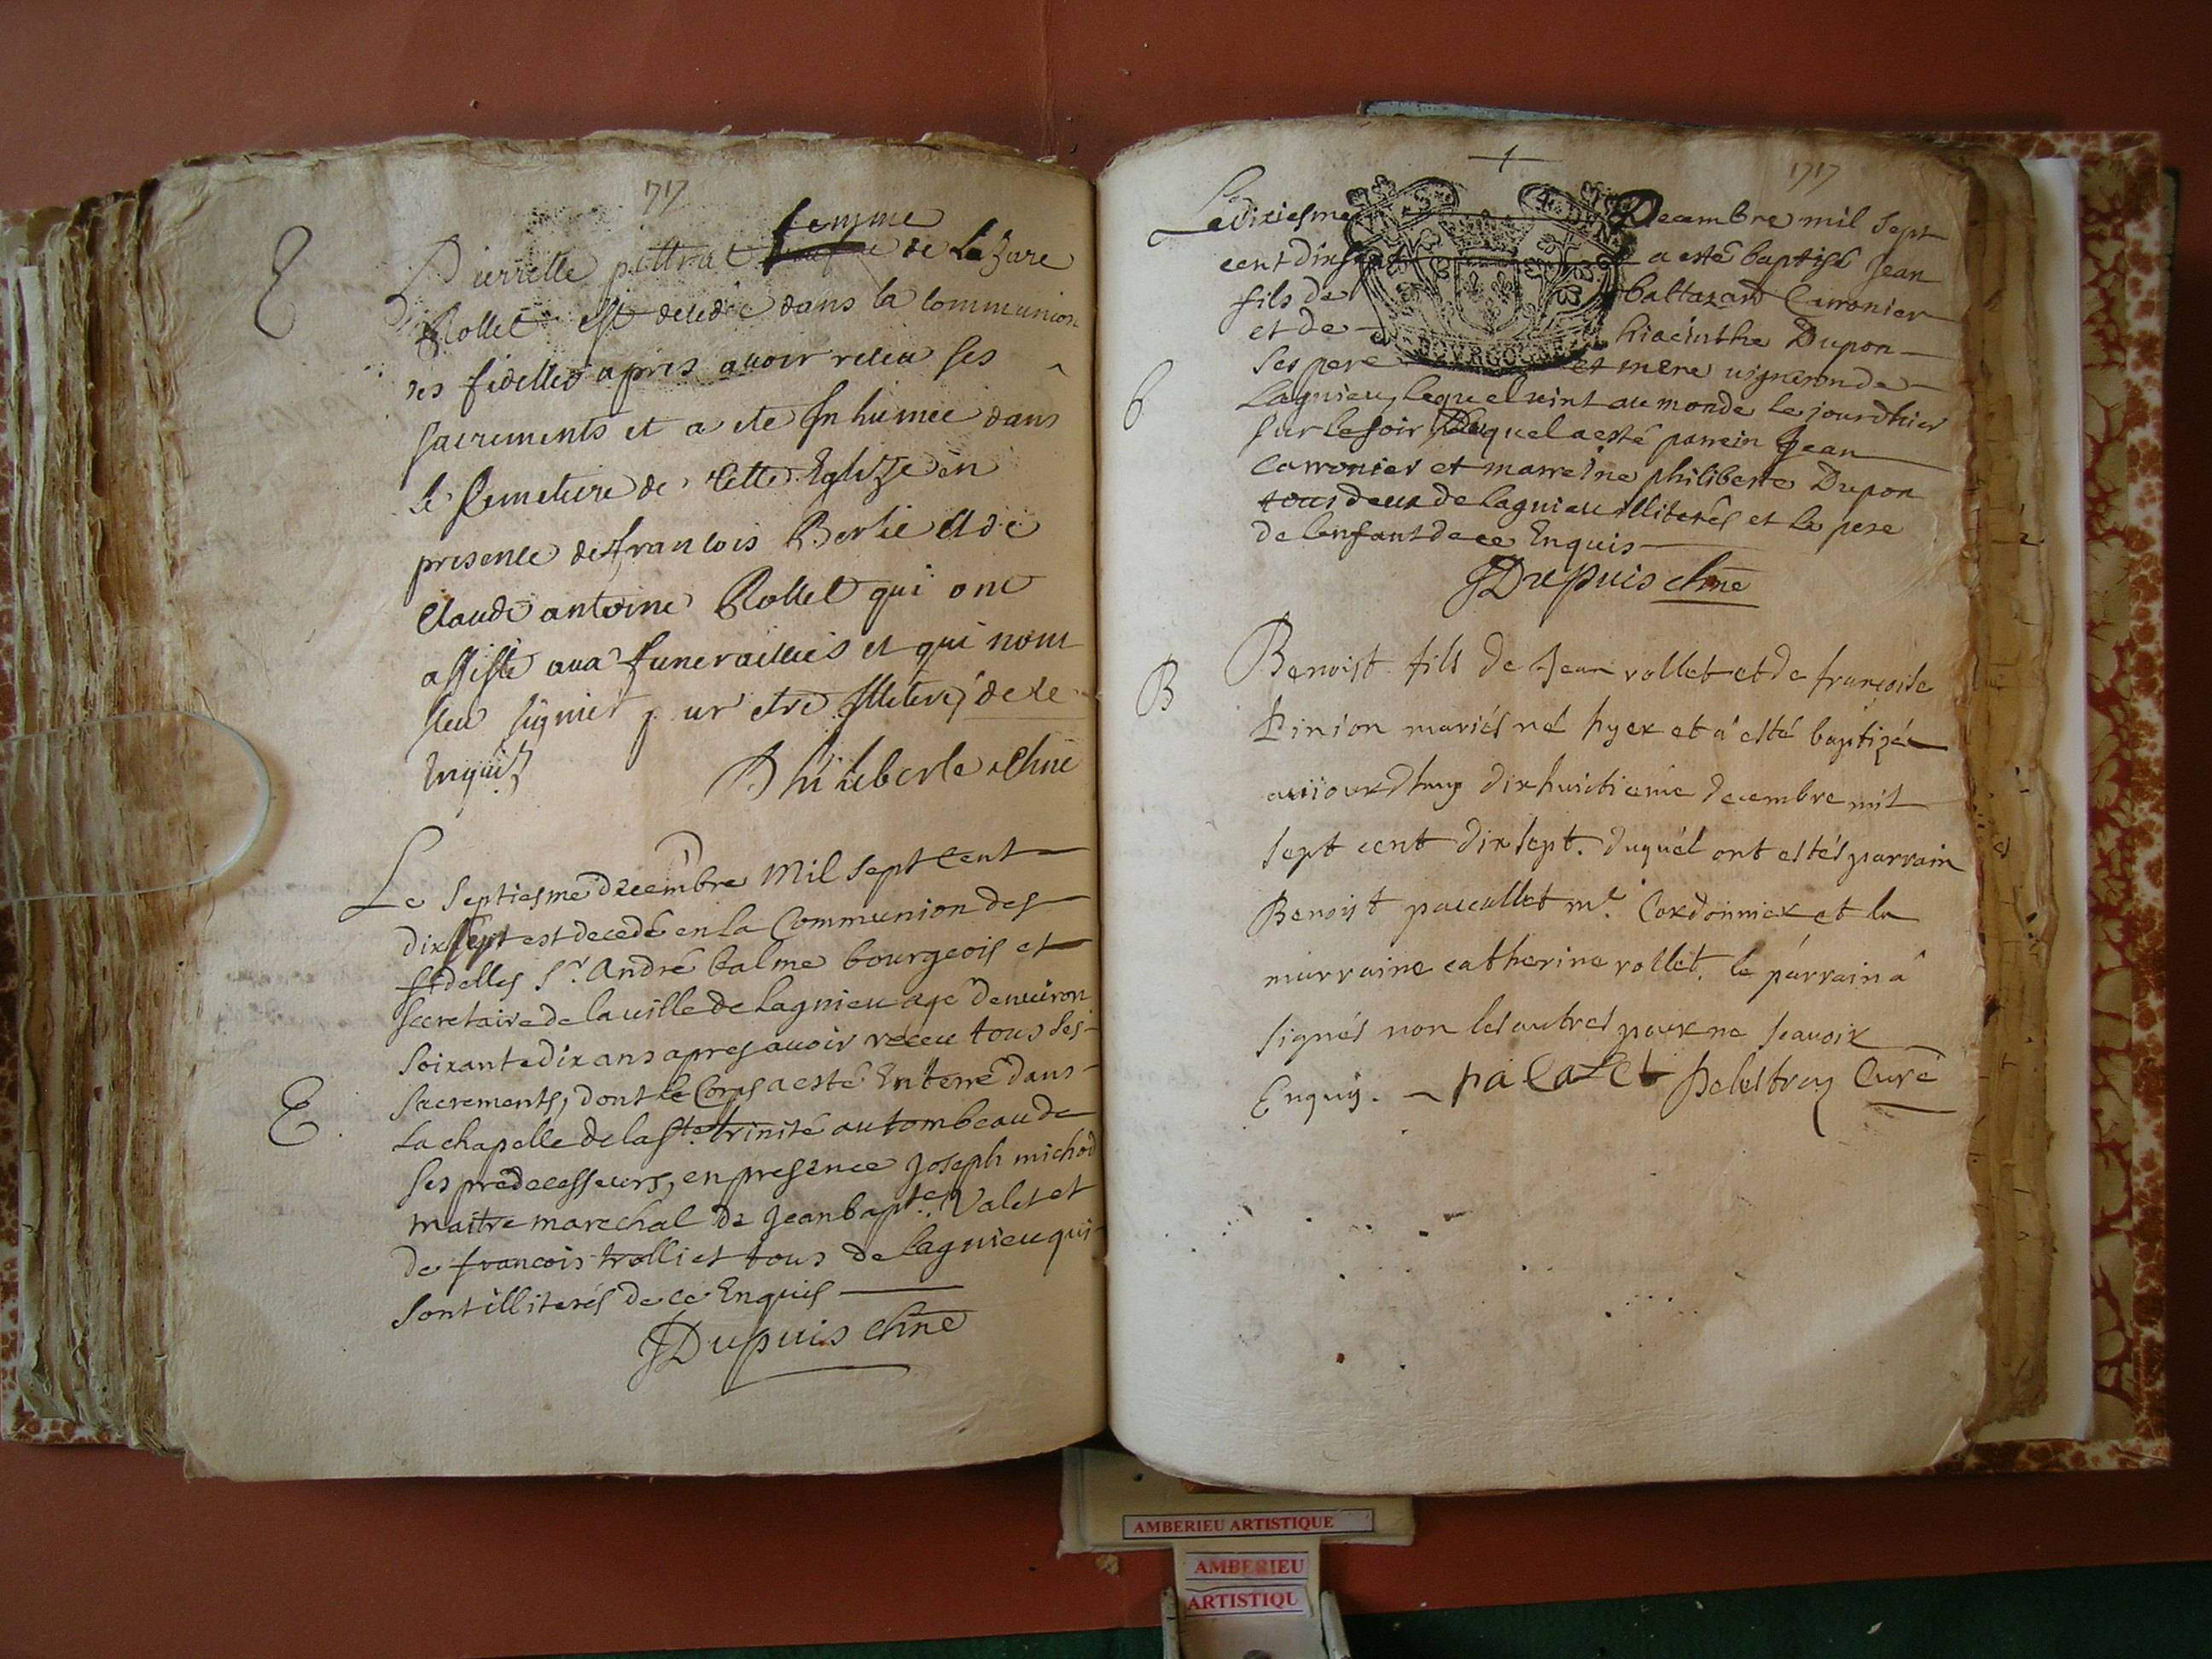 1717
E
femme
Pierrette pittra de Lazare
Rollet est decedée dans la Communion
des fidelles apres avoir receu ses
sacrements et a ete Inhumee dans
le Cemetiere de Cette Eglize en
presence de francois Berlie et de
Claude antoine Rollet qui ont
assiste aux funerailles et qui nont
sceu signer pour etre Illiteré de ce
Enquis
Philiberte Chne
Le Septiesme decembre Mil Sept Cent
dix sept est decedé en la Communion des
fidelles Sr. André Balme bourgeois et
secretaire de la ville de Lagnieu agé denviron
Soixante dix ans apres avoir receu tous ses
Sacrements, dont le Corps a esté Enterré dans
La chapelle de la Ste. trinité au tombeau de
Ses predecesseurs, en presence Joseph michod
E
maitre marechal de Jean bapte. Valet et
de francois trolliet tous de Lagnieu qui
Sont illiterés de ce Enquis
JDupuis Chne
1717
Le dixiesme Decembre mil Sept
cent dixsept a esté baptisé Jean
fils de baltazard Carronier
et de hiacinthe Dupon
BOURGOGNE
Ses pere et mere vigneron de
6
Lagnieu, lequel vint au monde le jourdhier
sur le soir, Duquel a esté parrein Jean
Carronier et marreine philiberte Dupon
tous deux de Lagnieu illiterés et le pere
de lenfant de ce Enquis
JDupuis Chne
B
Benoist fils de Jean rollet et de françoise
Pinion mariés né hyer et a esté baptizée
auiourdhuy dixhuictieme decembre mil
sept cent dix sept. duquel ont estés parrain
Benoist pacallet mr. Cordonnier et la
marraine catherine rollet. le parrain a
signés non les autres pour ne scavoir
Enquis.
pacalet
Delestroy Curé
AMBERIEU ARTISTIQUE
AMBERIEU
ARTISTIQU